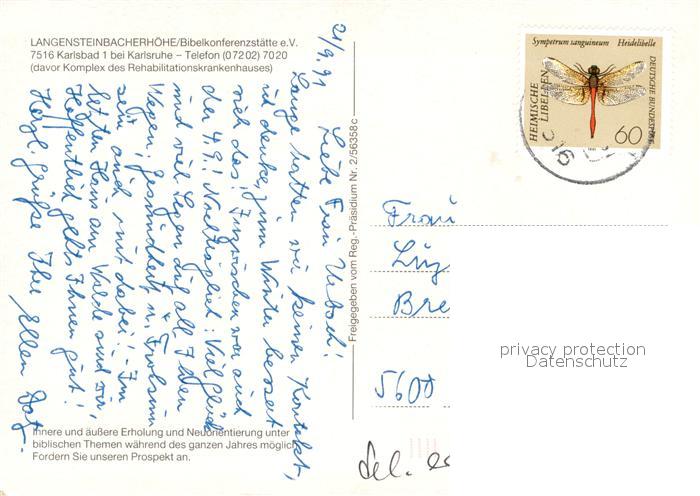 LANGENSTEINBACHERHÖHE/Bibelkonferenzstätte e.V.
7516 Karlsbad 1 bei Karlsruhe – Telefon (07202) 7020
(davor Komplex des Rehabilitationskrankenhauses)
21/9.91
Liebe Frau
Lange hatten wir keinen Kontakt,
ich denke, zum Winter bessert
sich das! Inzwischen war auch
der 4.9.! Nachträglich: Viel Glück
und viel Segen auf all Ihren
Wegen, Gesundheit u. Frohsinn
sein auch mit dabei! - Im
letzten Haus am Walde sind wir,
Hoffentlich geht's Ihnen gut!
Herzl. Grüße Ihre Ellen
Innere und äußere Erholung und Neuorientierung unter
biblischen Themen während des ganzen Jahres möglich
Fordern Sie unseren Prospekt an.
Freigegeben vom Reg.-Präsidium Nr. 2/56358c
Sympetrum sanguineum Heidelibelle
HEIMISCHE
LIBELLEN
DEUTSCHE BUNDESPOST
60
Frau
Bre
5600
privacy protection
Datenschutz